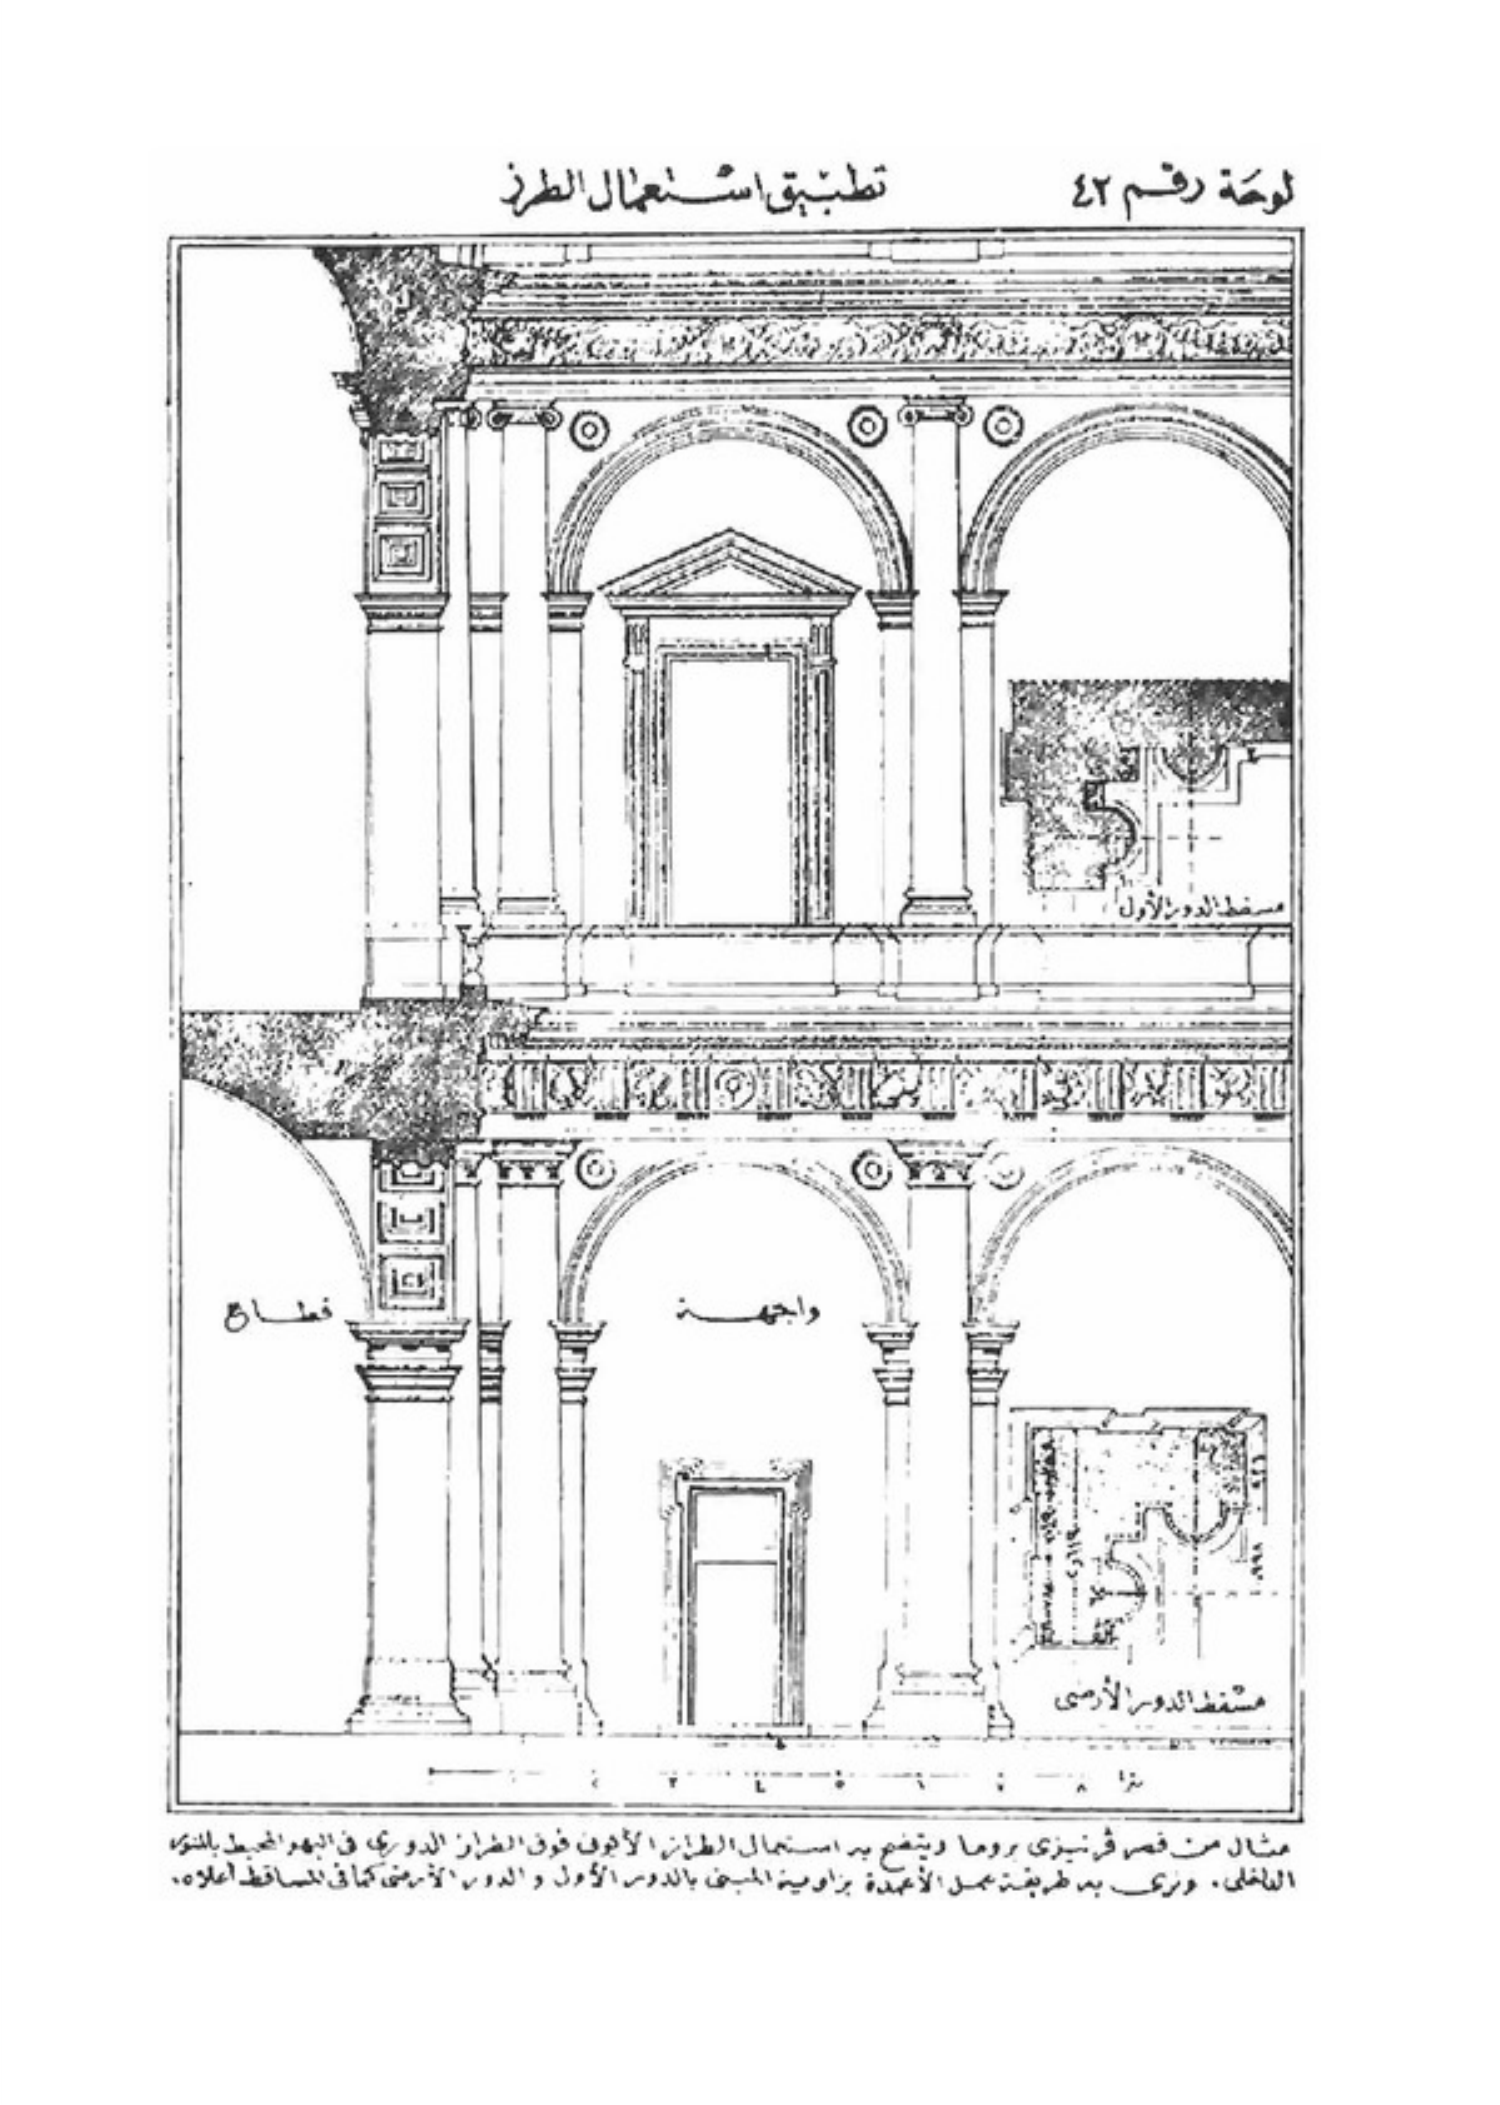 لوحة رقم ٤٢
تطبيق استعمال الطرز
مسقط الدور الأول
قطاع
واجهة
مسقط الدور الأرضى
مثال من قصر فرنيزى بروما ويتضح به استعمال الطراز الأيونى فوق الطراز الدورى فى البهو المحيط بالمنور
الداخلى. ونرى به طريقة عمل الأعمدة بزاوية المبنى بالدور الأول والدور الأرضى كما فى المساقط أعلاه.